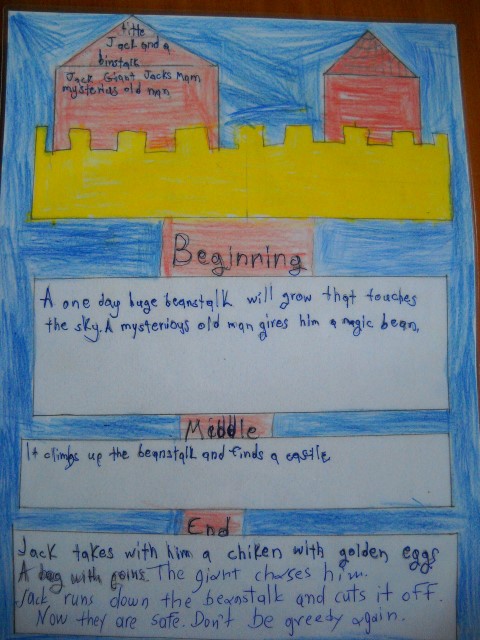 title
Jack and a
binstalk
Jack Giant Jacks Mam
mysterias old man
Beginning
A one day huge beanstalk will grow that touches
the sky. A mysterioys old man gives him a magic bean.
Middle
It climbs up the beanstalk and finds a castle
End
Jack takes with him a chiken with golden eggs
A bag with coins. The giant chases him.
Jack runs down the beanstalk and cuts it off.
Now they are safe. Don't be greedy again.